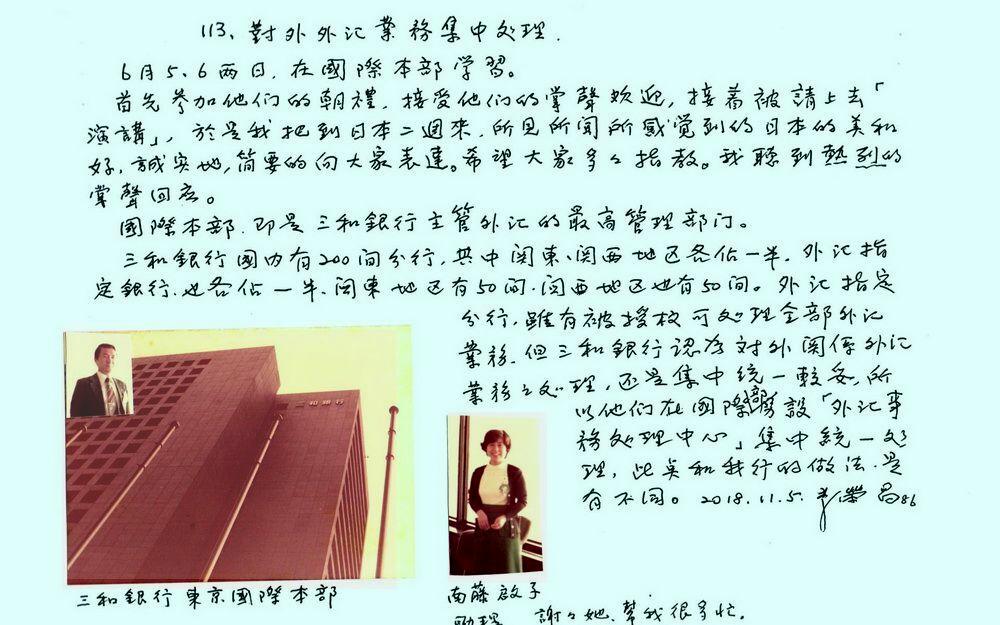 113、對外外汇業務集中处理.
6月5、6两日,在國際本部学習。
首先参加他们的朝禮,接受他们的掌聲欢迎,接着被請上去「
演講」,於是我把到日本二週来,所见所闻所感觉到的日本的美和
好,誠实地,简要的向大家表達。希望大家多々指教。我聽到熱烈的
掌聲回应。
國際本部,即是三和銀行主管外汇的最高管理部门。
三和銀行國内有200间分行,其中関東、関西地区各佔一半,外汇指
定銀行,也各佔一半,関東地区有50间,関西地区也有50间。外汇指定
分行,雖有被授权可处理全部外汇
業務,但三和銀行認為対外関係外汇
業務之处理,还是集中統一較妥,所
以他们在國際部設「外汇事
務处理中心」集中統一处
理,此点和我行的做法,是
有不同。2018.11.5. 榮昌86
三和銀行
三和銀行東京國際本部
南藤啟子
助理 謝々她,幫我很多忙。